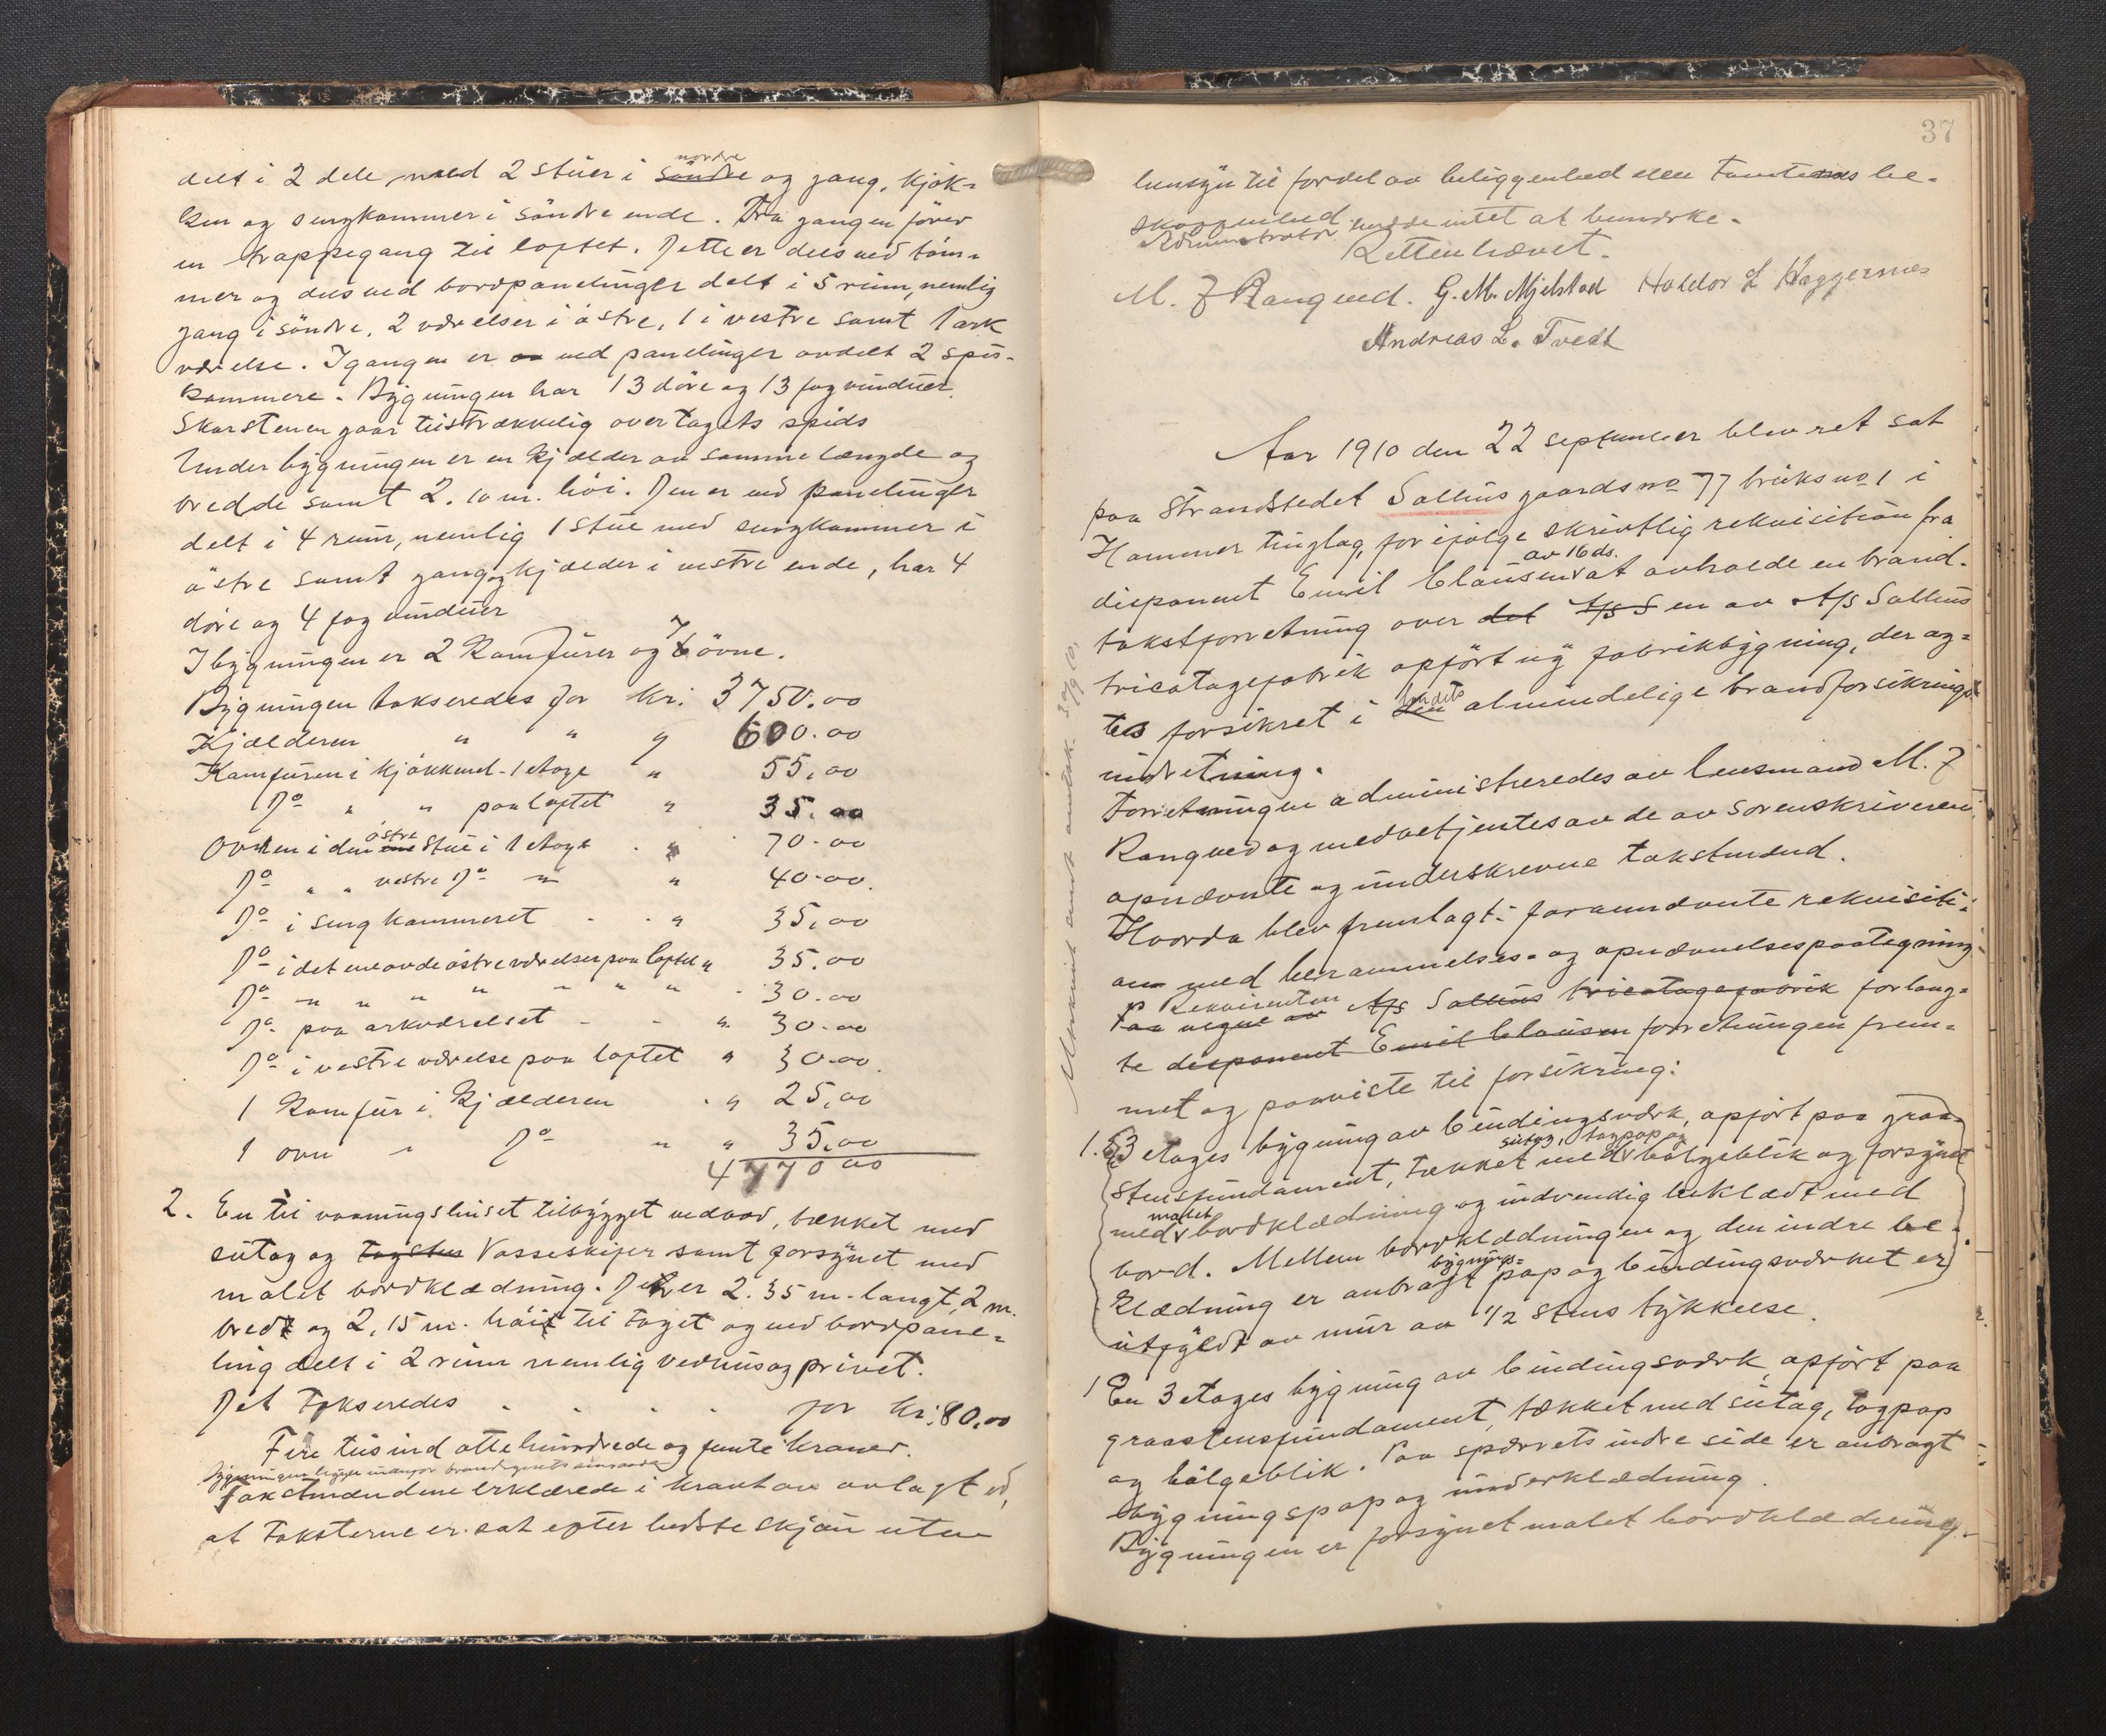 delt i 2 dele med 2 stüer i søndre nordre og gang, kjøk=
ken og sengkammer i søndre ende. Fra gangen fører
en trappegang til loftet. Dette er dels ved töm=
mer og dels ved bordpanelinger delt i 5 rüm, nemlig
gang i søndre, 2 værelser i østre, 1 i vestre samt 1 ark
værelse. I gangen er av ved panelinger avdelt 2 spis-
kammere. Bygningen har 13 döre og 13 fag vindüer.
Skorstenen gaar tilstrækkelig over tagets spids
Under bygningen er en kjælder av samme længde og
bredde samt 2.10 m. høi. Den er ved panelinger
delt i 4 rüm, nemlig 1 stüe med sengkammer i
østre samt gang og kjælder i vestre ende, har 4
döre og 4 fag vindüer
I bygningen er 2 Komfürer og 7 övne.
Bygningen takseredes for Kr. 3750.00
Kjælderen " " " 600.00
Komfüren i kjøkkenet - 1 etage " 55,00
Do " " paa loftet " 35.00
Ovnen i den østre stüe i 1 etage . " 70.00
Do " " vestre Do " " 40.00.
Do i sengkammeret . . " 35,00
Do i det ene av de østre værelser paa loftet " 35.00
Do " " " " " " " . 30.00
Do paa arkværelset - - " 30.00
Do i vestre værelse paa loftet " 30.00.
1 Komfür i kjælderen . " 25,00
1 ovn i Do " " 35,00
4770 00
2. En til vaaningshüset tilbygget vedbod, tækket med
sütag og Vosseskifer samt forsynet med
malet bordklædning. Det er 2.35 m. langt, 2 m.
bredt og 2,15 m. høit til taget og ved bordpane=
ling delt i 2 rüm nemlig vedhüs og privet.
Det takseredes . . . . for Kr. 80,00
Fire tüsind otte hündrede og femti kroner.
Bygningen ligger utenfor
Takstmændene erklærede i kraft av avlagt ed,
at taksterne er sat efter bedste skjön uten
37
hensyn til fordel av beliggenhed eller tomtens be-
skaffenhed.
Administrator hadde intet at bemærke.
Retten hævet.
M. J Ranqued. G. M. Mjelstad Haldor L Haggernes
Andreas L. Tvedt
Merknad amt antek. 30/9 10.
Aar 1910 den 22 september blev ret sat
paa Strandstedet Salhus gaardsno 77 bruksno 1 i
Hammer tinglag, for ifølge skrivtlig rekvisition fra
disponent Emil Clausen av 16 ds. at avholde en brand-
takstforretning over det A/s S en av A/s Salhus
tricotagefabrik opført ny fabrikbygning, der ag=
tes forsikret i den landets almindelige brandforsikrings
indretning.
Forretningen administreredes av lensmand M. J
Ranqued og medbetjentes av de av sorenskriveren
opnævnte og underskrevne takstmænd.
Hvorda blev fremlagt: forannævnte rekvisiti-
on med berammelses- og opnævnelsespaategning
Rekvirenten
Paa vegne av A/s Salhus tricotagefabrik forlang=
te disponent Emil Clausen forretningen frem-
met og paaviste til forsikring:
1. 3 etages bygning av bindingsværk, opført paa graa-
stensfundament, tækket med sütag, tagpap og bölgeblik og forsynet
med malet bordklædning og indvendig beklædt med
bord. Mellem bordklædningen og den indre be-
klædning er anbragt bygnings= pap og bindingsværket er
utfyldt av mür av 1/2 stens tykkelse.
1 En 3 etages bygning av bindingsværk, opført paa
graastensfundament, tækket med sütag, tagpap
og bölgeblik. Paa spærrets indre side er anbragt
bygningspap og ünderklædning.
Bygningen er forsynet malet bordklædning.